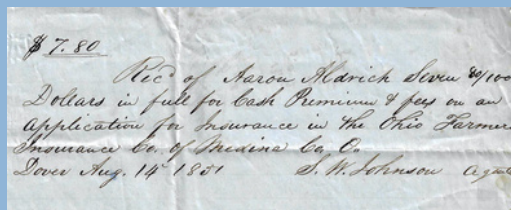 $ 7.80
Rec'd of Aaron Aldrich Seven 80/100
Dollars in full for Cash Premium & fees on an
application for Insurance in the Ohio Farmers
Insurance Co. of Medina Co O.
Dover Aug. 14 1851 S. W. Johnson Agent